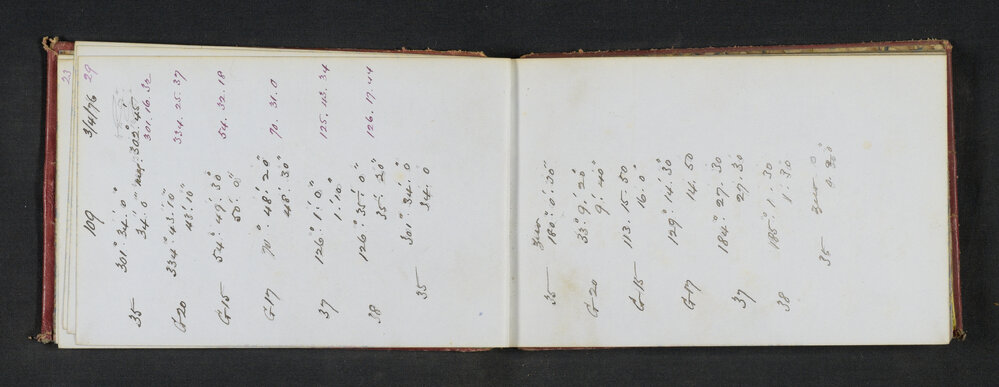 109 3/4/76 29
23
35 301°: 34': 0" 302°. 45'
34': 0" mag: 301. 16. 30
G 20 334°: 43': 10" 334. 25. 37
43': 10"
G 15 54°: 49': 30" 54. 32. 18
50': 0"
G 17 70°: 48': 20" 70. 31. 0
48': 30"
37 126°: 1': 0" 125. 43. 34
1': 10"
38 126°: 35': 0" 126. 17. 44
35': 20"
35 301°: 34': 0"
34': 0
zero
35 180°: 0': 30"
G 20 33°: 9': 20"
9': 40"
G 15 113. 15. 50
16. 0"
G 17 129°: 14. 30
14. 50
37 184°: 27. 30
27. 30
38 185°: 1. 30
1. 30
35 zero 0